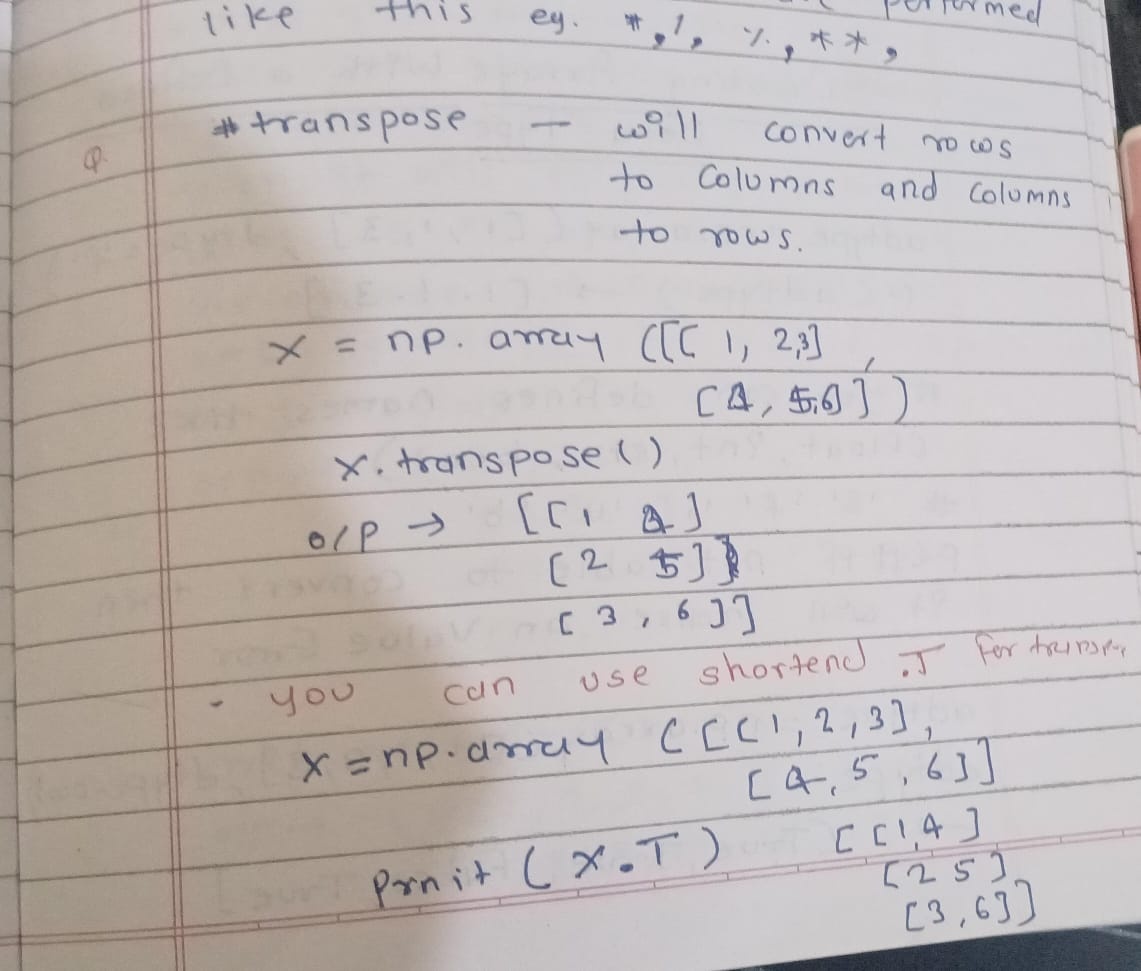 performed
like this eg. *, /, %, **,
# transpose — will convert rows
Q.
to columns and columns
to rows.
x = np. array ([[ 1, 2,3]
,
[4, 5,6] )
x. transpose()
o/p → [[1 4]
[2 5]]
[ 3, 6 ]]
- you can use shortend .T for
x = np. array ([[1, 2, 3],
[4, 5, 6]]
Prnit ( x.T ) [[1,4]
[2 5]
[3,6]]